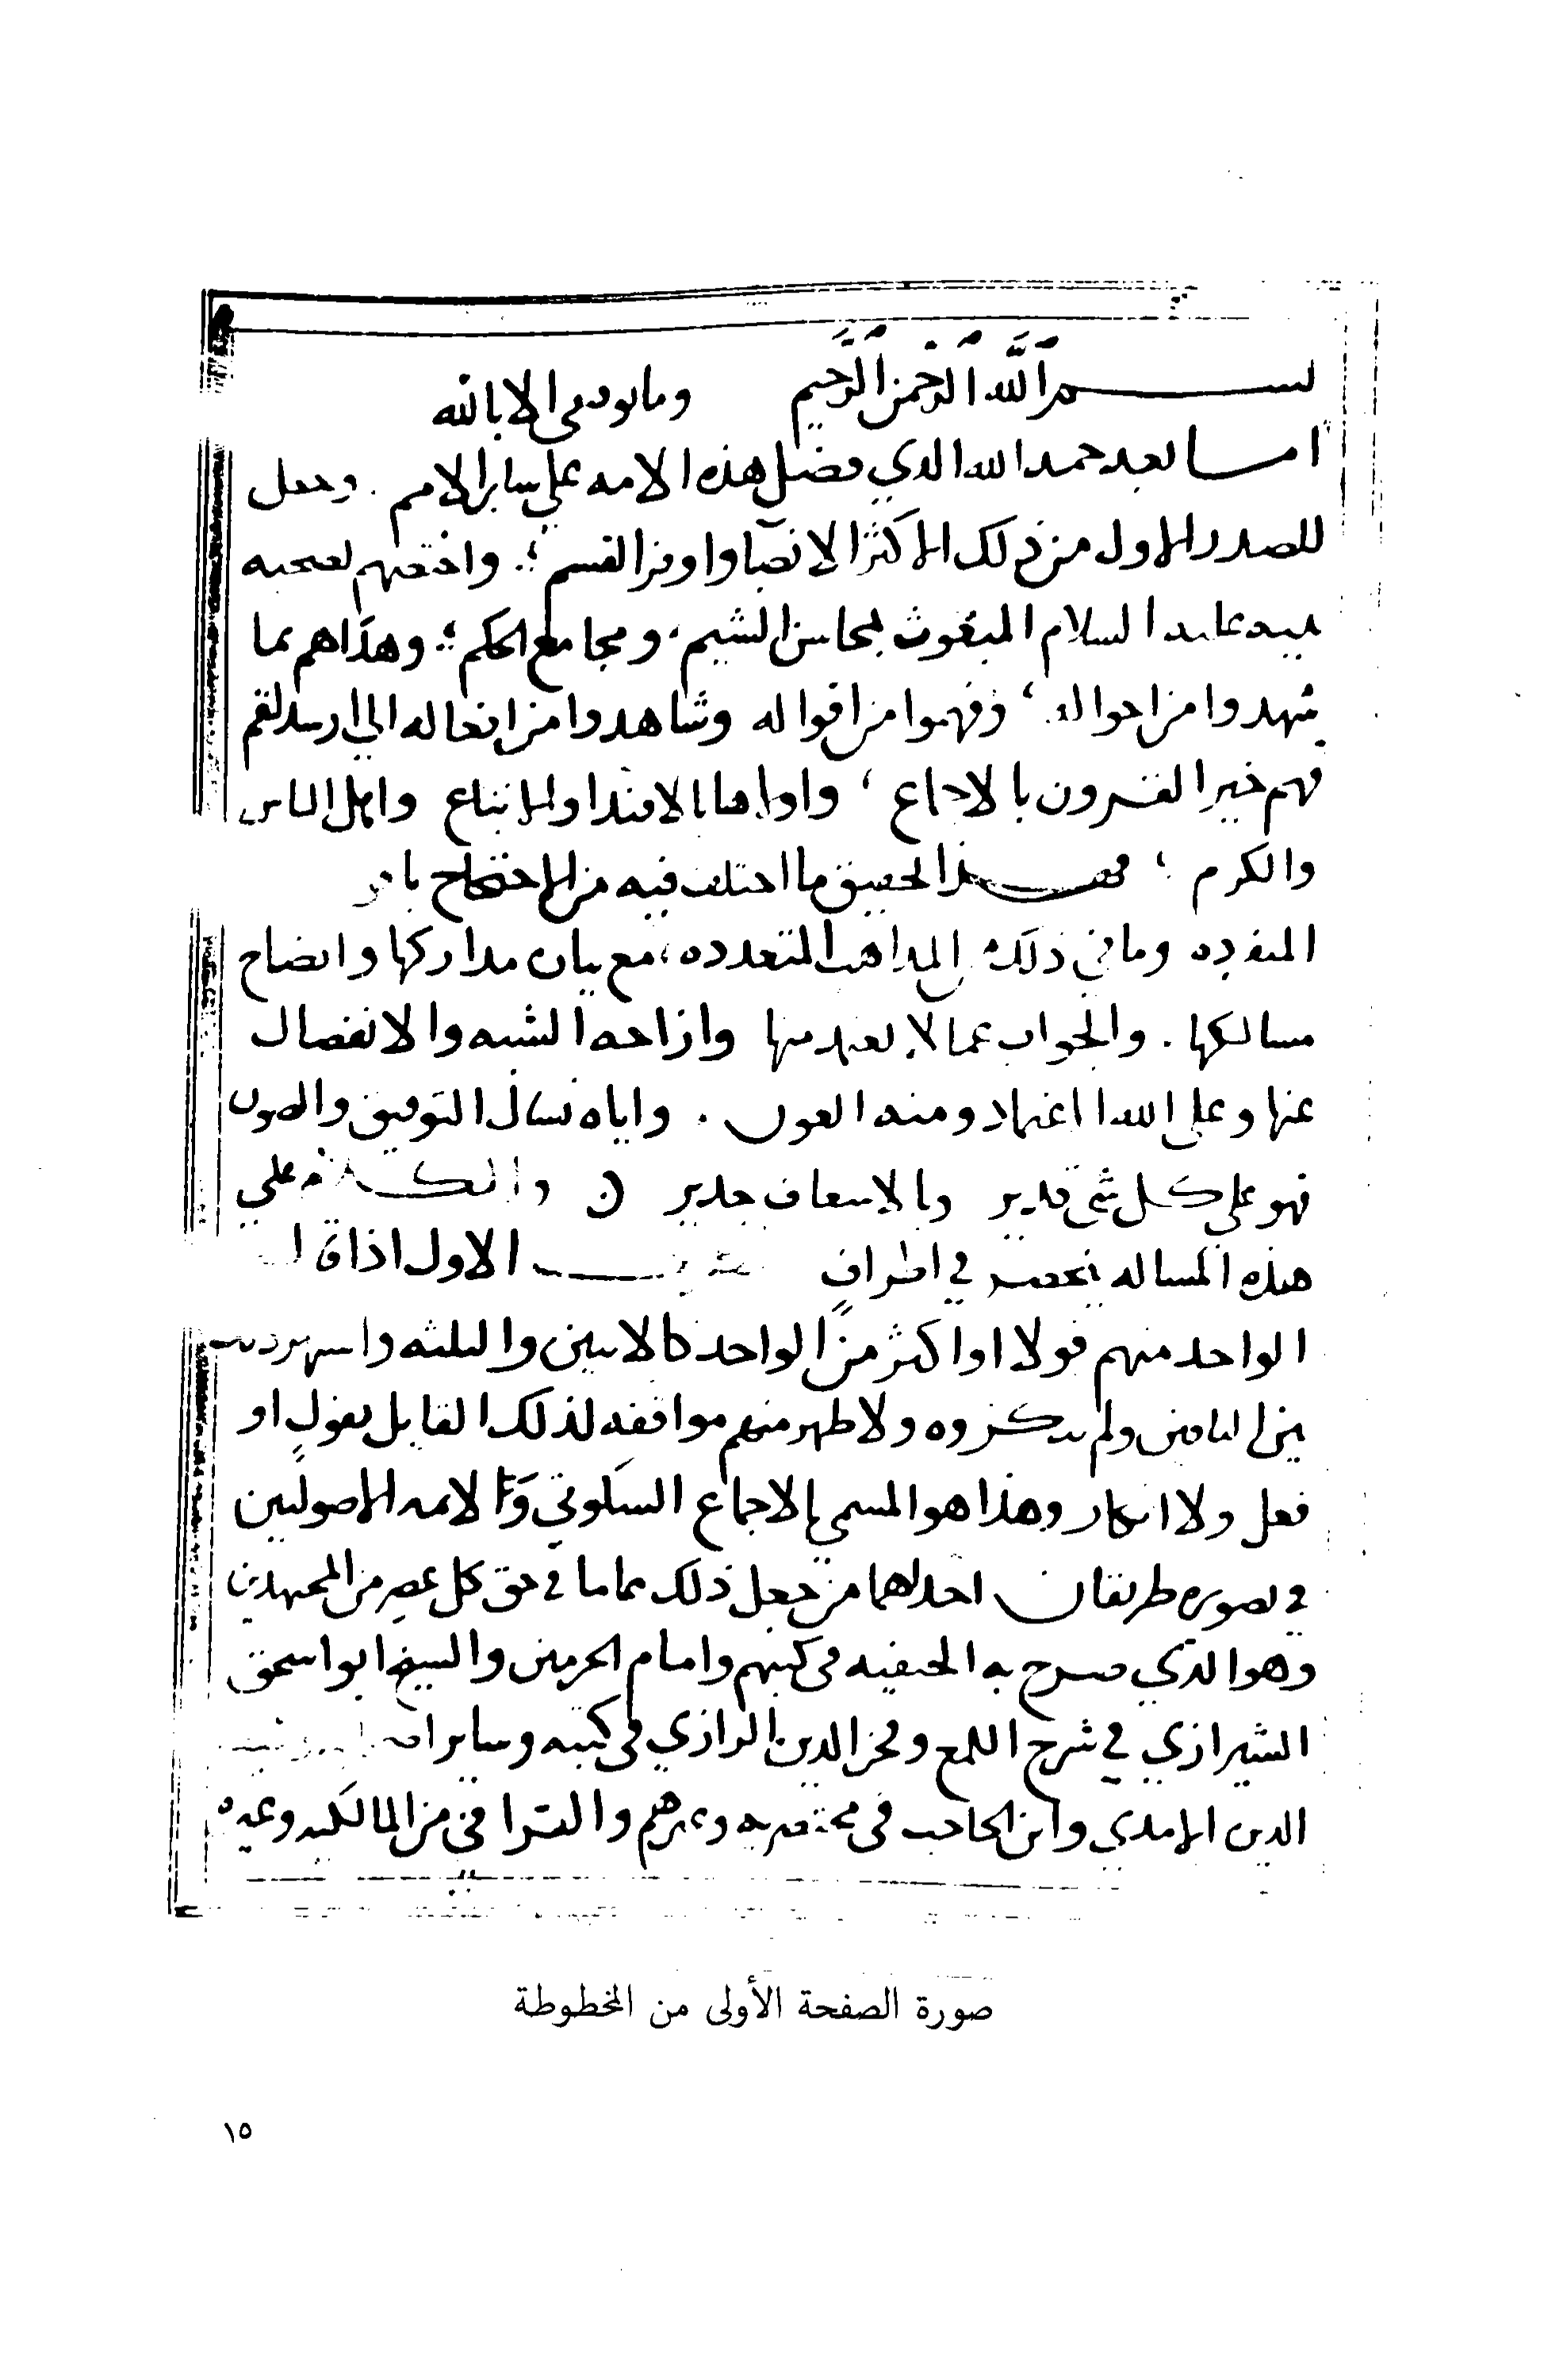 بسم الله الرحمن الرحيم وما توفيقي الا بالله
اما بعد حمد الله الذي فضل هذه الامه على ساير الامم . وجعل
للصدر الاول من ذلك الاكثر الانصبا واوفر القسم ؛ واختصهم بصحبه
نبيه عليه السلام المبعوث بمحاسن الشيم ، ومجامع الحكم ؛ وهداهم بما
شهدوا من احواله ، وفهموا من اقواله وشاهدوا من افعاله الي ارشد لقم
فهم خير القرون بالاجماع ، واولاها بالاقتدا والاتباع واهل الباس
والكرم ؛ فهذا تحقيق ما اختلف فيه من الاحتجاج
المنفرده وما في ذلك المذاهب المتعدده ، مع بيان مداركها وايضاح
مسالكها . والجواب عما لا يعتمد منها وازاحه الشبه والانفصال
عنها وعلى الله اعتماد ومنه العون . واياه نسال التوفيق والصون
فهو على كل شي قدير وبالاسعاف جدير ن والكلام علي
هذه المساله ينحصر في اطراف الاول اذا قال
الواحد منهم قولا او اكثر من الواحد كالاثنين والثلثه واشتهر ذلك
بين الباقين ولم ينكروه ولا ظهر منهم موافقه لذلك القايل بقول او
فعل ولا انكار وهذا هو المسمي بالاجماع السكوتي وللايمه الاصوليين
في تصويره طريقان احداهما من جعل ذلك عاما في حق كل عصر من المجتهدين
وهو الذي صرح به الحنفيه في كتبهم وامام الحرمين والشيخ ابو اسحق
الشيرازي في شرح اللمع وفخر الدين الرازي في كتبه وساير
الدين الامدي وابن الحاجب في مختصريه وغيرهم والقرافي من المالكيه وغيره
صورة الصفحة الأولى من المخطوطة
١٥